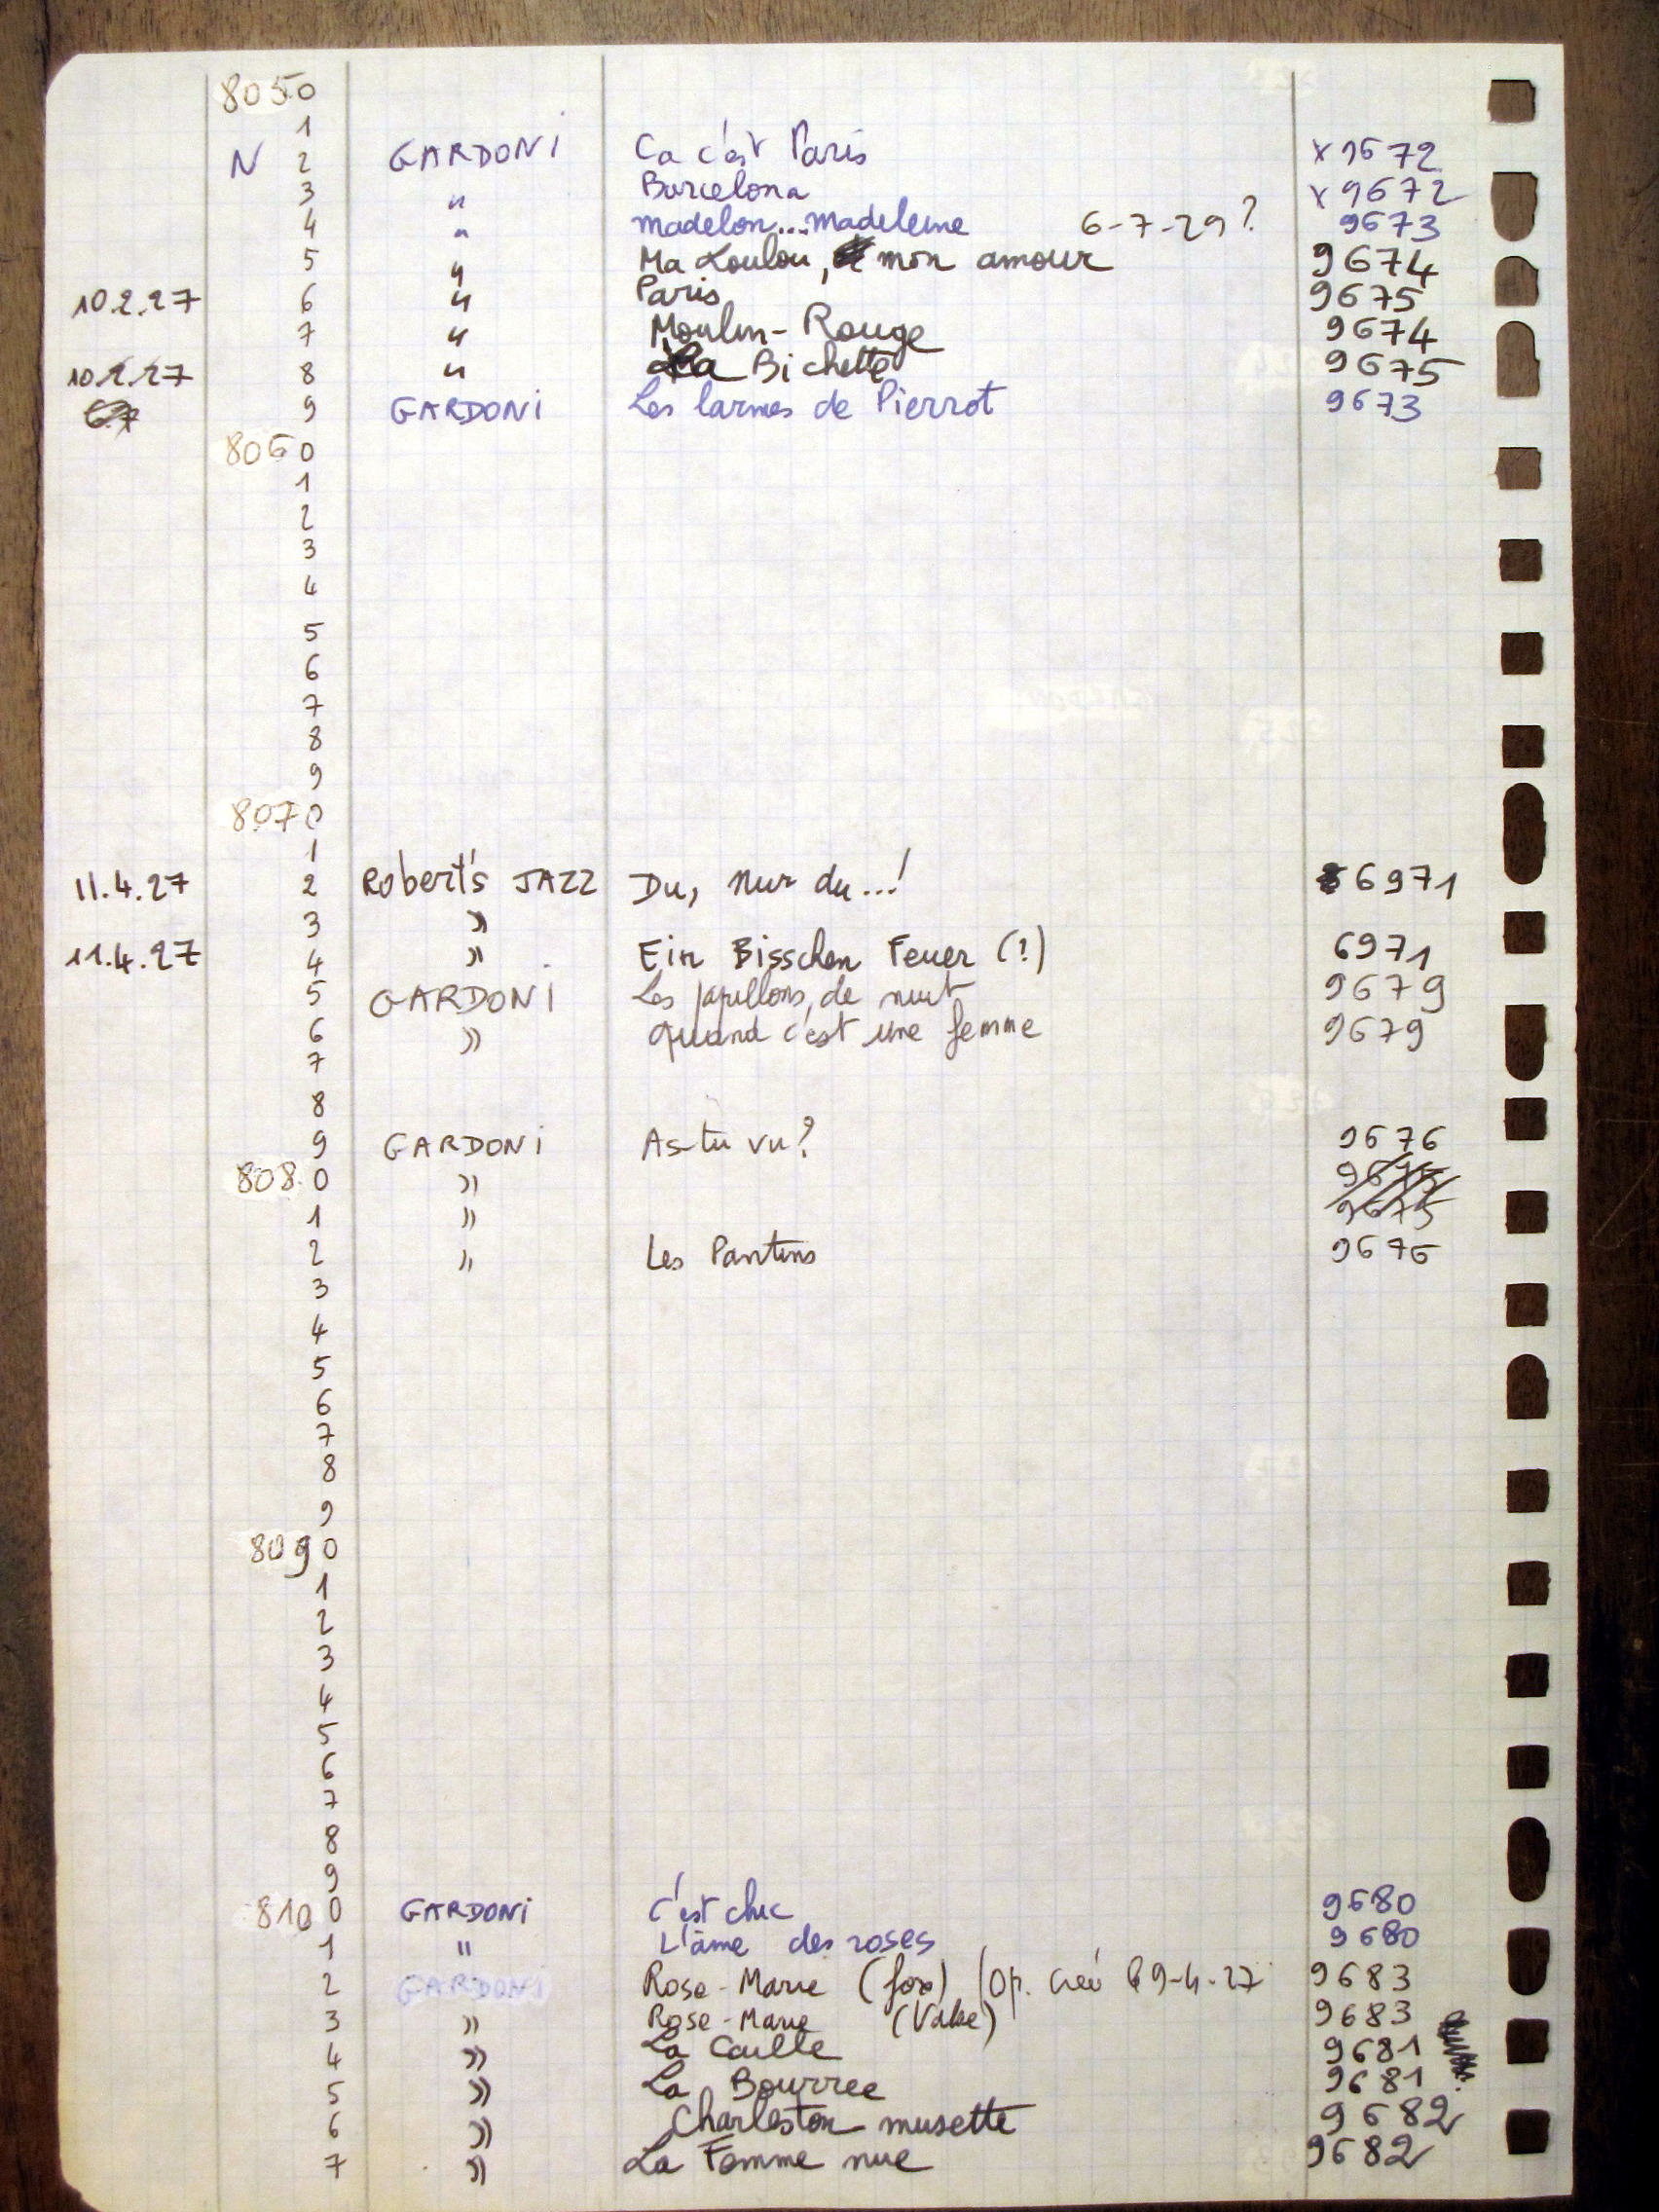 8050
1
N 2 GARDONI Ca c'est Paris x 9672
3 " Barcelona x 9672
4 " Madelon...Madeleine 6-7-29? 9673
5 " Ma Loulou, mon amour 9674
10.2.27 6 " Paris 9675
7 " Moulin-Rouge 9674
10.2.27 8 " La Bichette 9675
9 GARDONI Les larmes de Pierrot 9673
8060
1
2
3
4
5
6
7
8
9
8070
1
11.4.27 2 Robert's JAZZ Du, nur du...! 6971
3 »
11.4.27 4 » Ein Bisschen Feuer (?) 6971
5 GARDONI Les papillons de nuit 9679
6 » Quand c'est une femme 9679
7
8
9 GARDONI As-tu vu? 9676
8080 » 9675
1 » 9675
2 » Les Pantins 9676
3
4
5
6
7
8
9
8090
1
2
3
4
5
6
7
8
9
8100 GARDONI C'est chic 9680
1 " L'âme des roses 9680
2 GARDONI Rose-Marie (fox) (Op. créé 9-4-27 9683
3 » Rose-Marie (Valse) 9683
4 » La Caille 9681
5 » La Bourree 9681
6 » Charleston musette 9682
7 » La Femme nue 9682